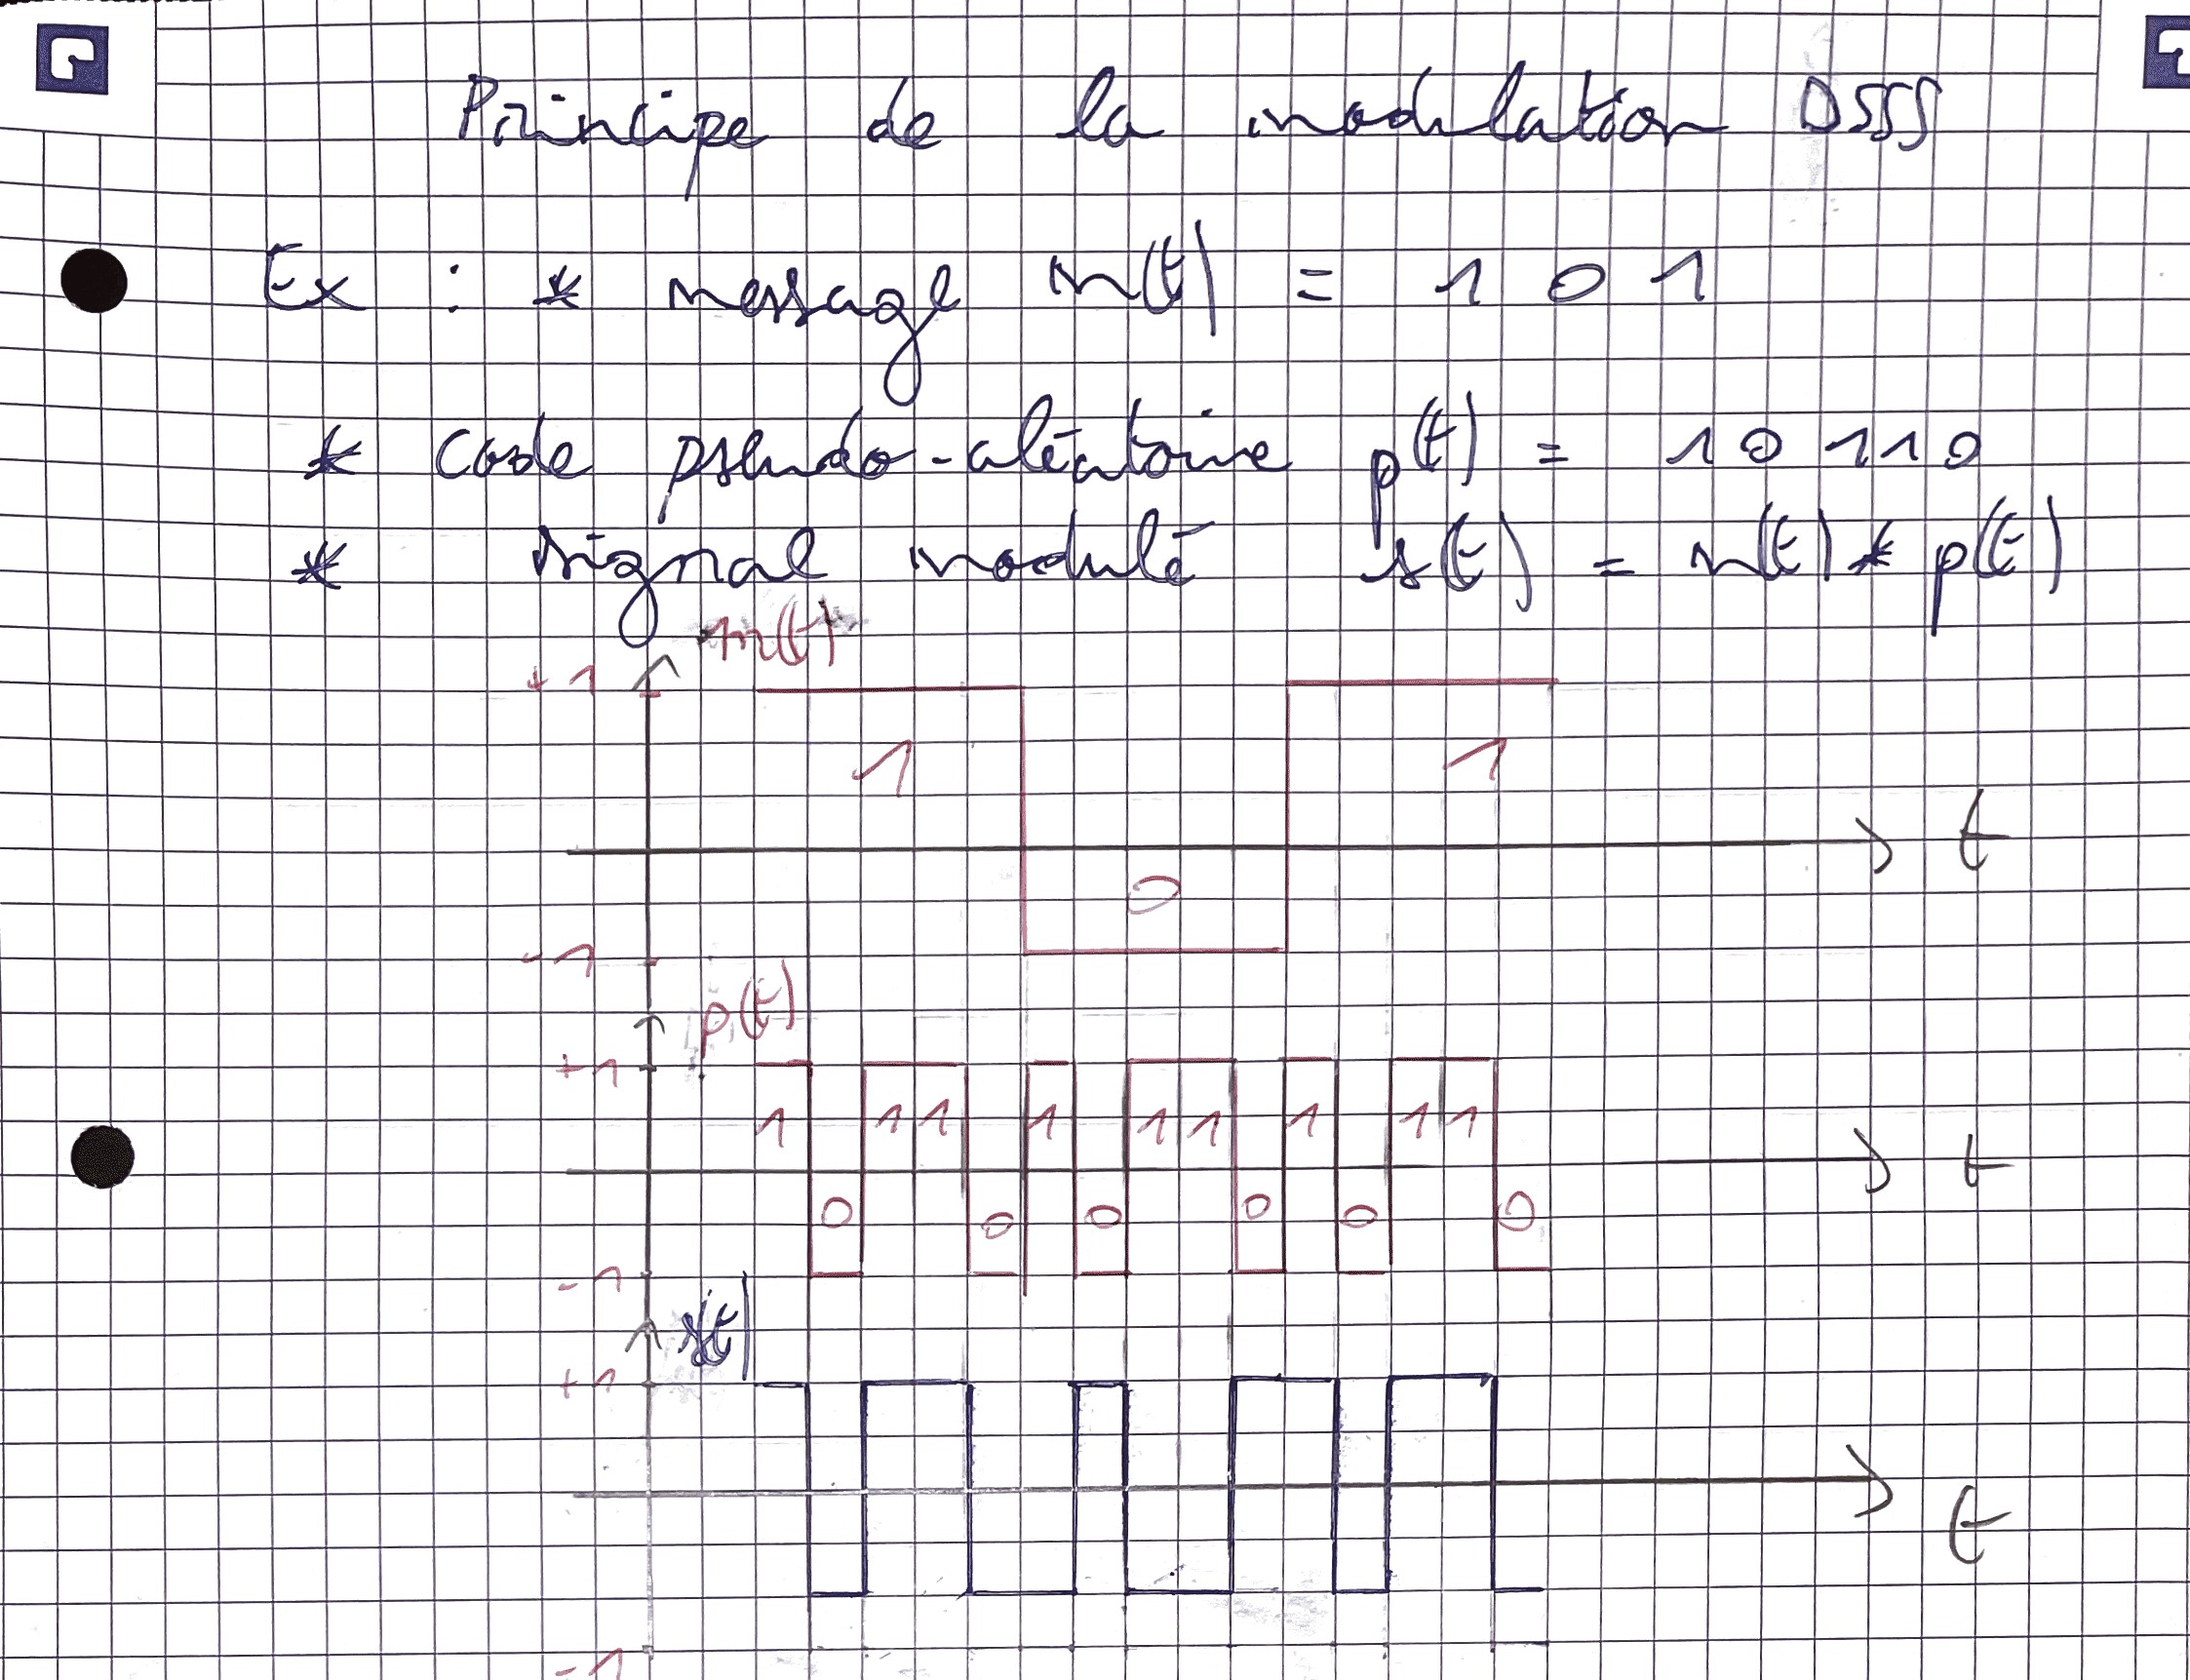 Principe de la modulation DSSS
Ex : * message m(t) = 1 0 1
* code pseudo-aléatoire p(t) = 1 0 1 1 0
* signal modulé s(t) = m(t) * p(t)
m(t)
+1
1 1
t
0
-1
p(t)
+1
1 1 1 1 1 1 1 1 1
t
0 0 0 0 0 0
-1
s(t)
+1
t
-1